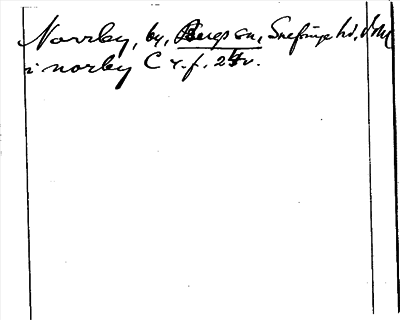 Norrby, by, Bergs sn, Snefringe hd, Vstm
i norby C r.f. 24v.